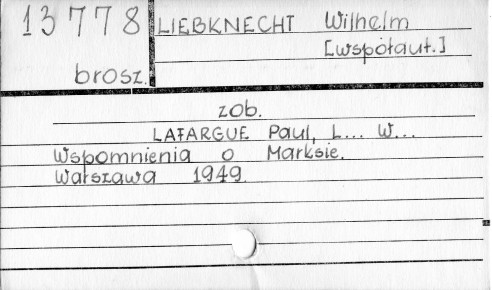 13 778
LIEBKNECHT Wilhelm
[współaut.]
brosz.
zob.
LAFARGUE Paul, L... W...
Wspomnienia o Marksie.
Warszawa 1949.